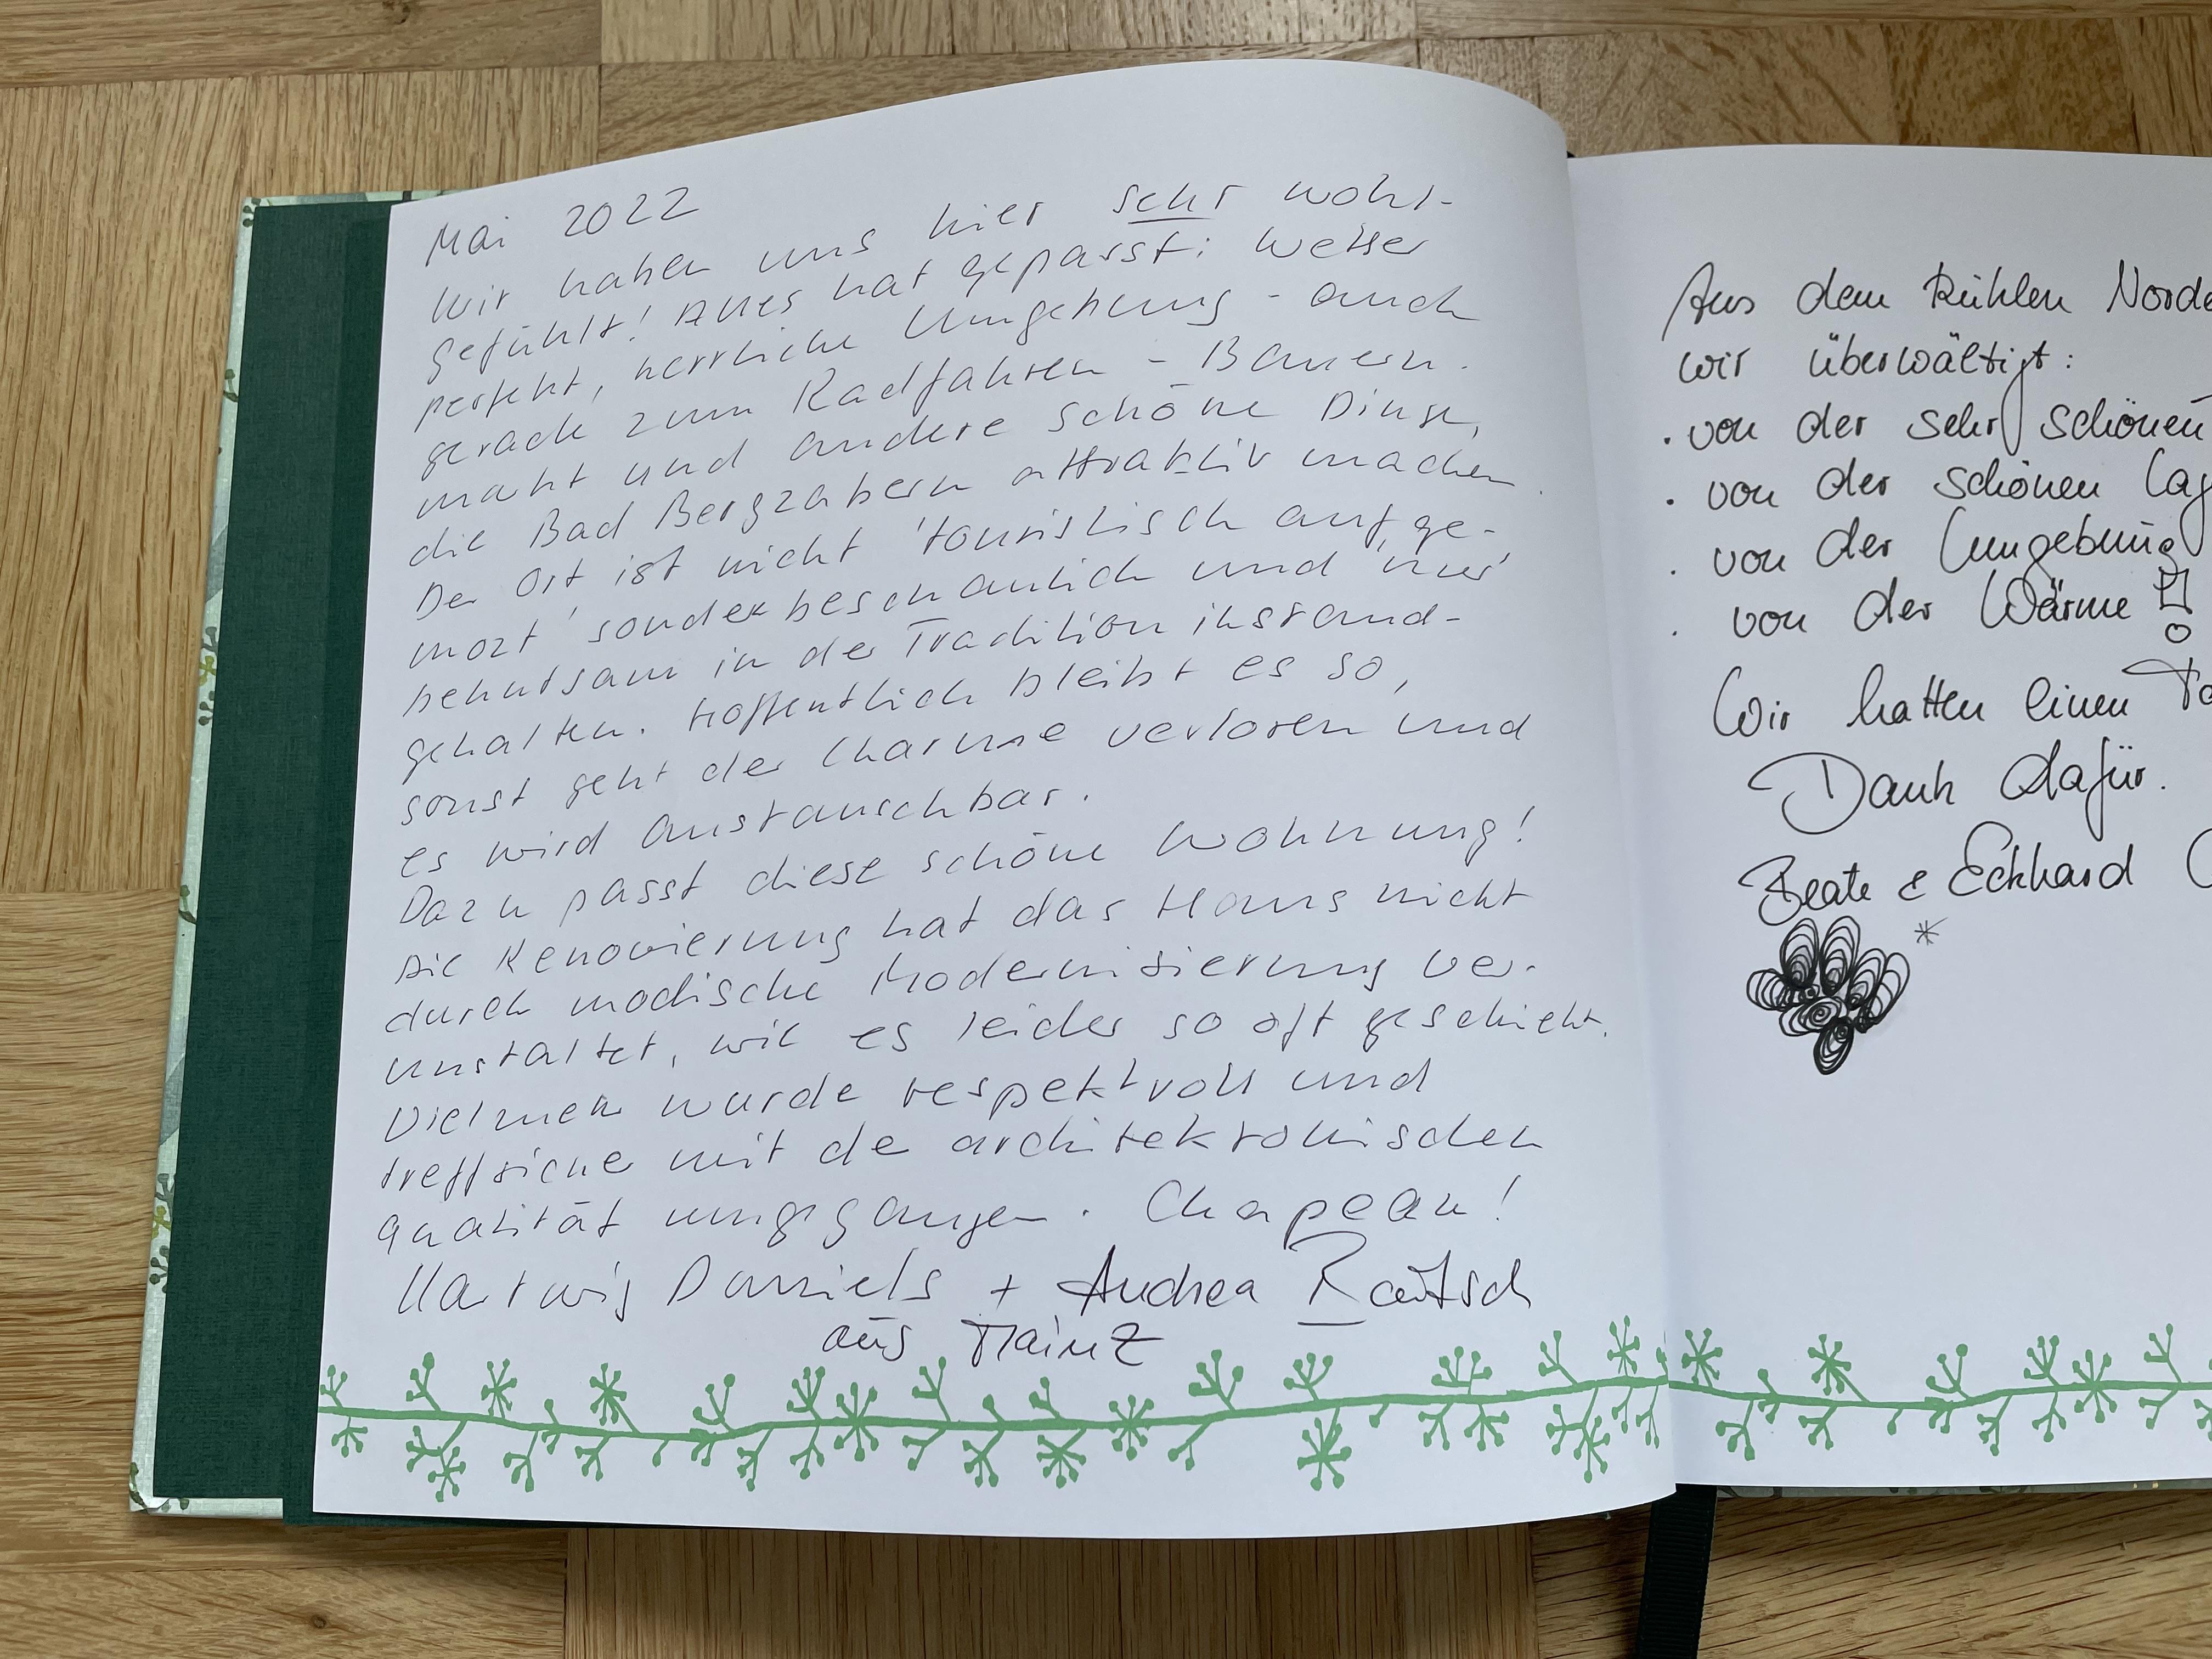 Mai 2022
Wir haben uns hier sehr wohl-
gefühlt! Alles hat gepasst: Wetter
perfekt, herrliche Umgebung - auch
gerade zum Radfahren - Bauern-
markt und andere schöne Dinge,
die Bad Bergzabern attraktiv machen.
Der Ort ist nicht 'touristisch aufge-
motzt' sonder beschaulich und 'nur'
behutsam in der Tradition instand-
gehalten. Hoffentlich bleibt es so,
sonst geht der Charme verloren und
es wird austauschbar.
Dazu passt diese schöne Wohnung!
Die Renovierung hat das Haus nicht
durch modische Modernisierung ver-
unstaltet, wie es leider so oft geschieht.
Vielmehr wurde respektvoll und
treffsicher mit de architektonischen
Qualität umgegangen. Chapeau!
Hartwig Daniels + Andrea Rautsch
aus Mainz
Aus dem kühlen Norde
wir überwältigt:
. von der sehr schönen
. von der schönen Lag
. von der Umgebung
. von der Wärme!
Wir hatten einen
Dank dafür.
Beate & Eckhard